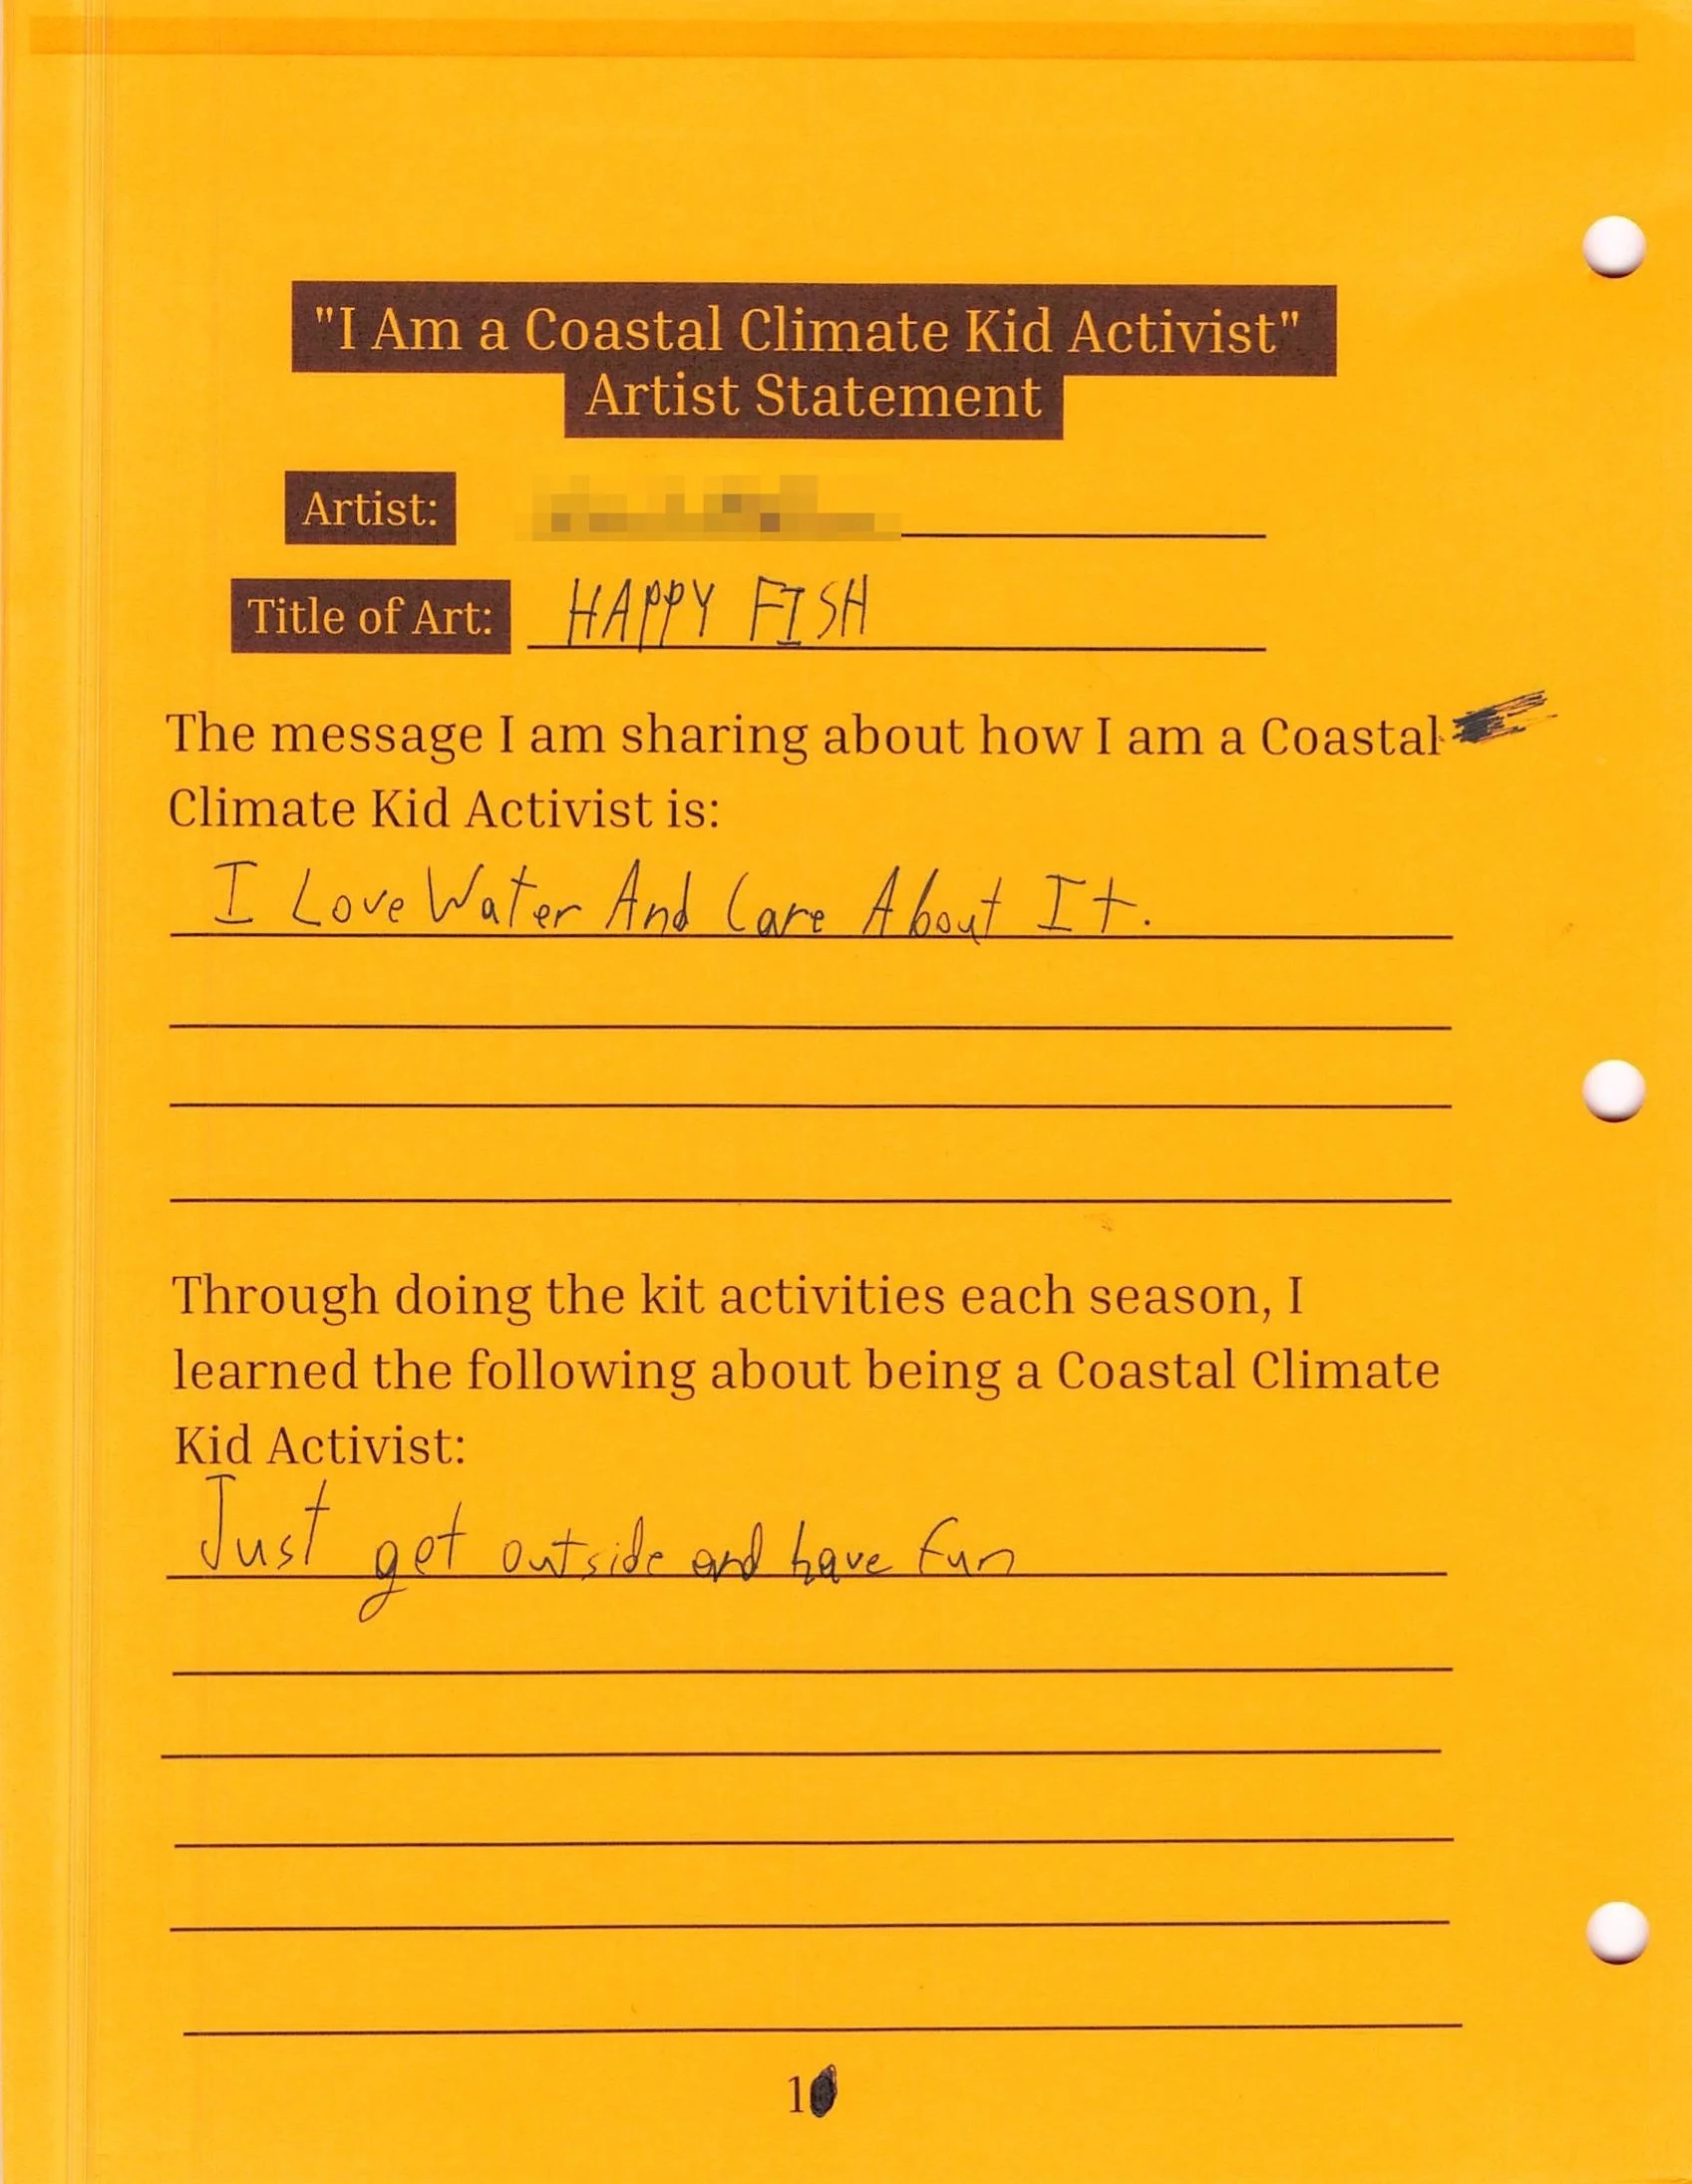 "I Am a Coastal Climate Kid Activist"
Artist Statement
Artist:
Title of Art: HAPPY FISH
The message I am sharing about how I am a Coastal
Climate Kid Activist is:
I Love Water And Care About It.
Through doing the kit activities each season, I
learned the following about being a Coastal Climate
Kid Activist:
Just get outside and have fun
1